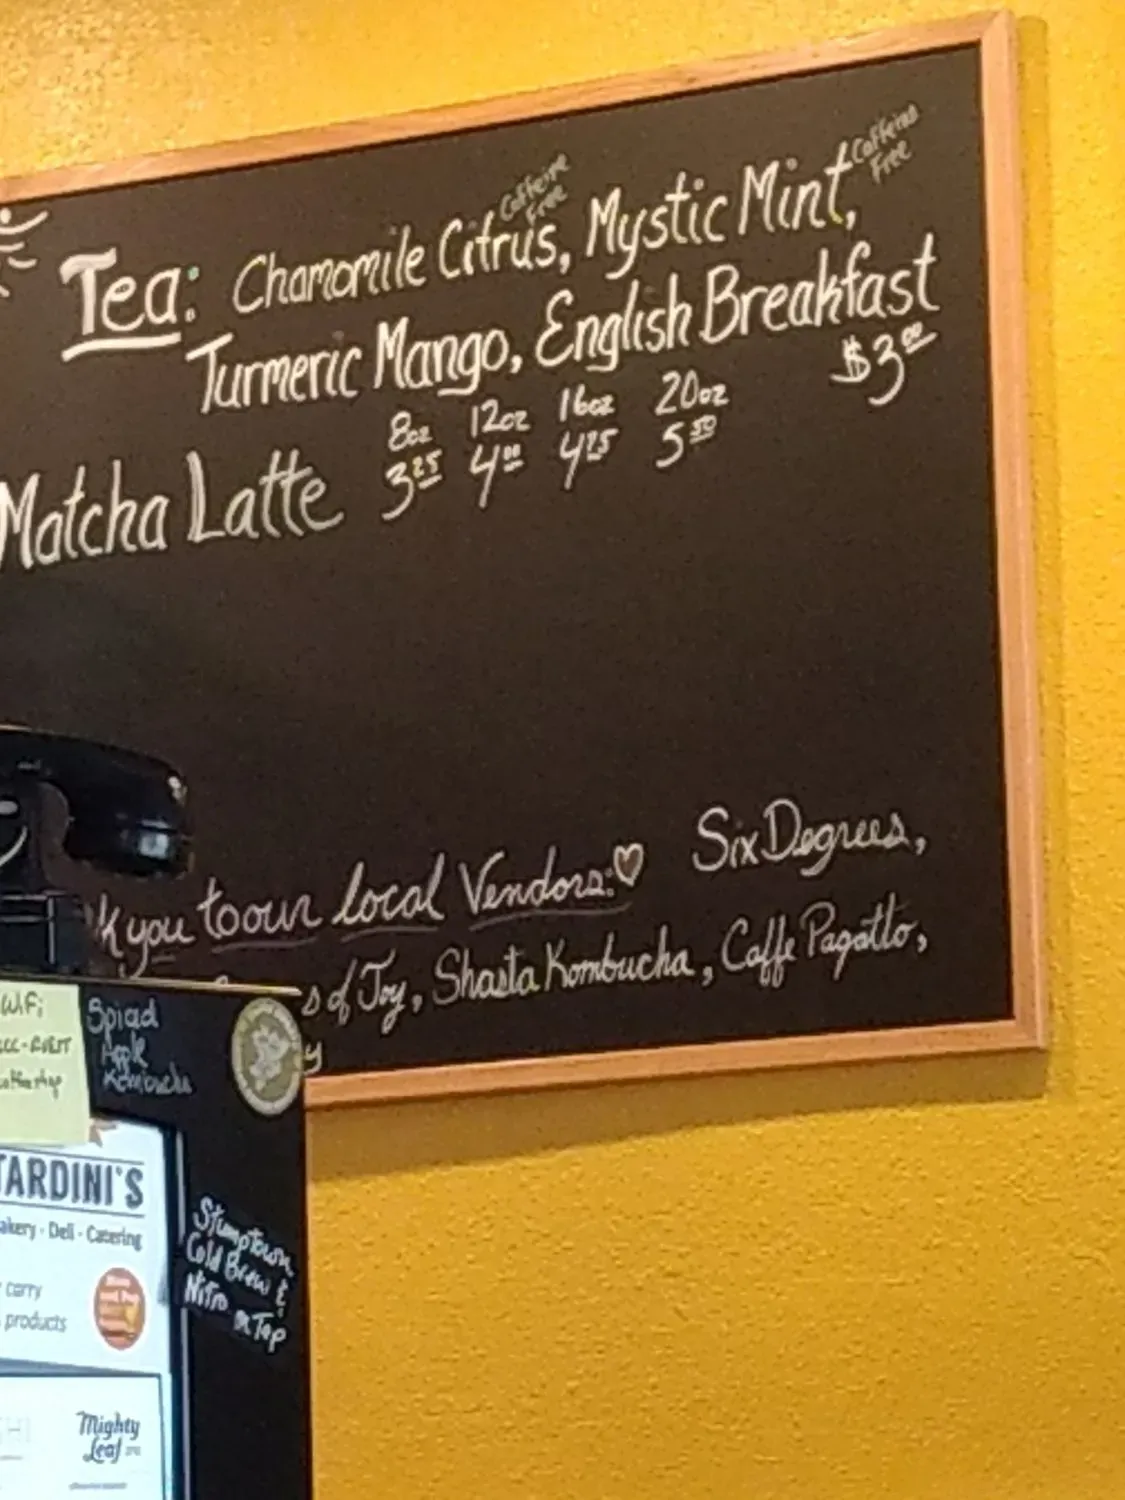 Caffeine
Free
Caffeine
Free
Tea: Chamomile Citrus, Mystic Mint,
Turmeric Mango, English Breakfast
$3.00
8oz 12oz 16oz 20oz
Matcha Latte 3.25 4.00 4.25 5.50
you to our local Vendors: Six Degrees,
of Joy, Shasta Kombucha, Caffe Pagatto,
WiFi
Spiced
Apple
Kombucha
TARDINI'S
akery · Deli · Catering
carry
products
Stumptown
Cold Brew &
Nitro on Tap
Mighty
Leaf